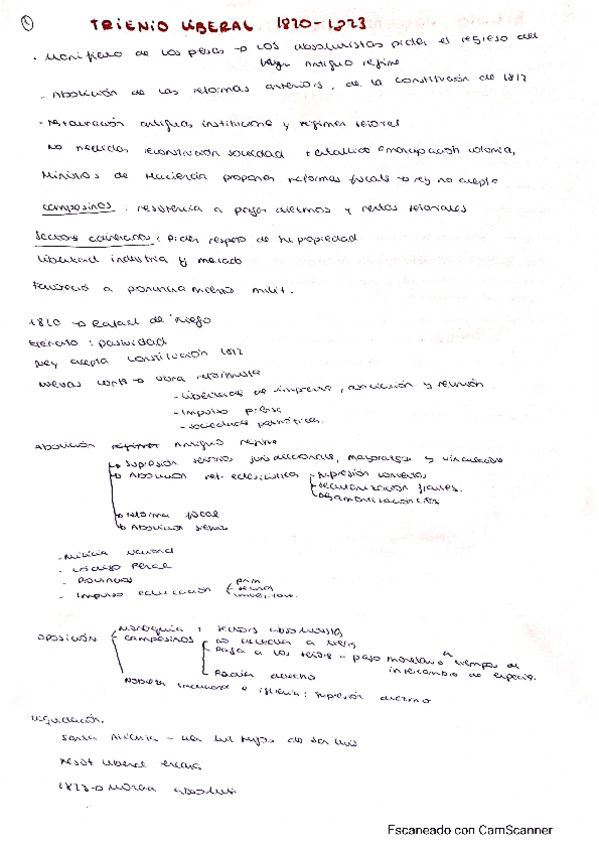 ①
TRIENIO LIBERAL 1820-1823
- Manifiesto de los persas → los absolutistas piden el regreso del
antiguo régimen
- Abolición de las reformas anteriores, de la constitución de 1812
- Restauración antiguas instituciones y régimen
No medidas reconstrucción sociedad + estallido emancipación colonia,
Ministros de Hacienda proponen reformas fiscals → rey no acepta
campesinos : resistencia a pagar diezmos y rentas
sectores : piden respeto de propiedad
libertad industria y mercado
milit.
1820 → Rafael de Riego
Ejército : pasividad
Rey acepta constitución 1812
nuevas corts → obra reformista
- libertades de imprenta, asociación y reunión
- impulso prensa
- sociedades patrióticas.
Abolición antiguo régime
→ supresión jurisdiccionales, mayorazgos y vinculación
→ Abolición ref. eclesiástica - supresión conventos
- secularización frailes.
- desamortización
→ reforma fiscal
→ Abolición
- Milicia nacional
- código Penal
- Provincias
- impulso educación
oposición
Monarquía : sectors absolutista,
campesinos
no a tierra
Pasa a los - pago monetario tiempos de
intercambio de especie.
Nobleza e iglesia : supresión diezmo
Liquidación.
Santa Alianza - cien mil hijos de San Luis
liberal
1823 →
Escaneado con CamScanner